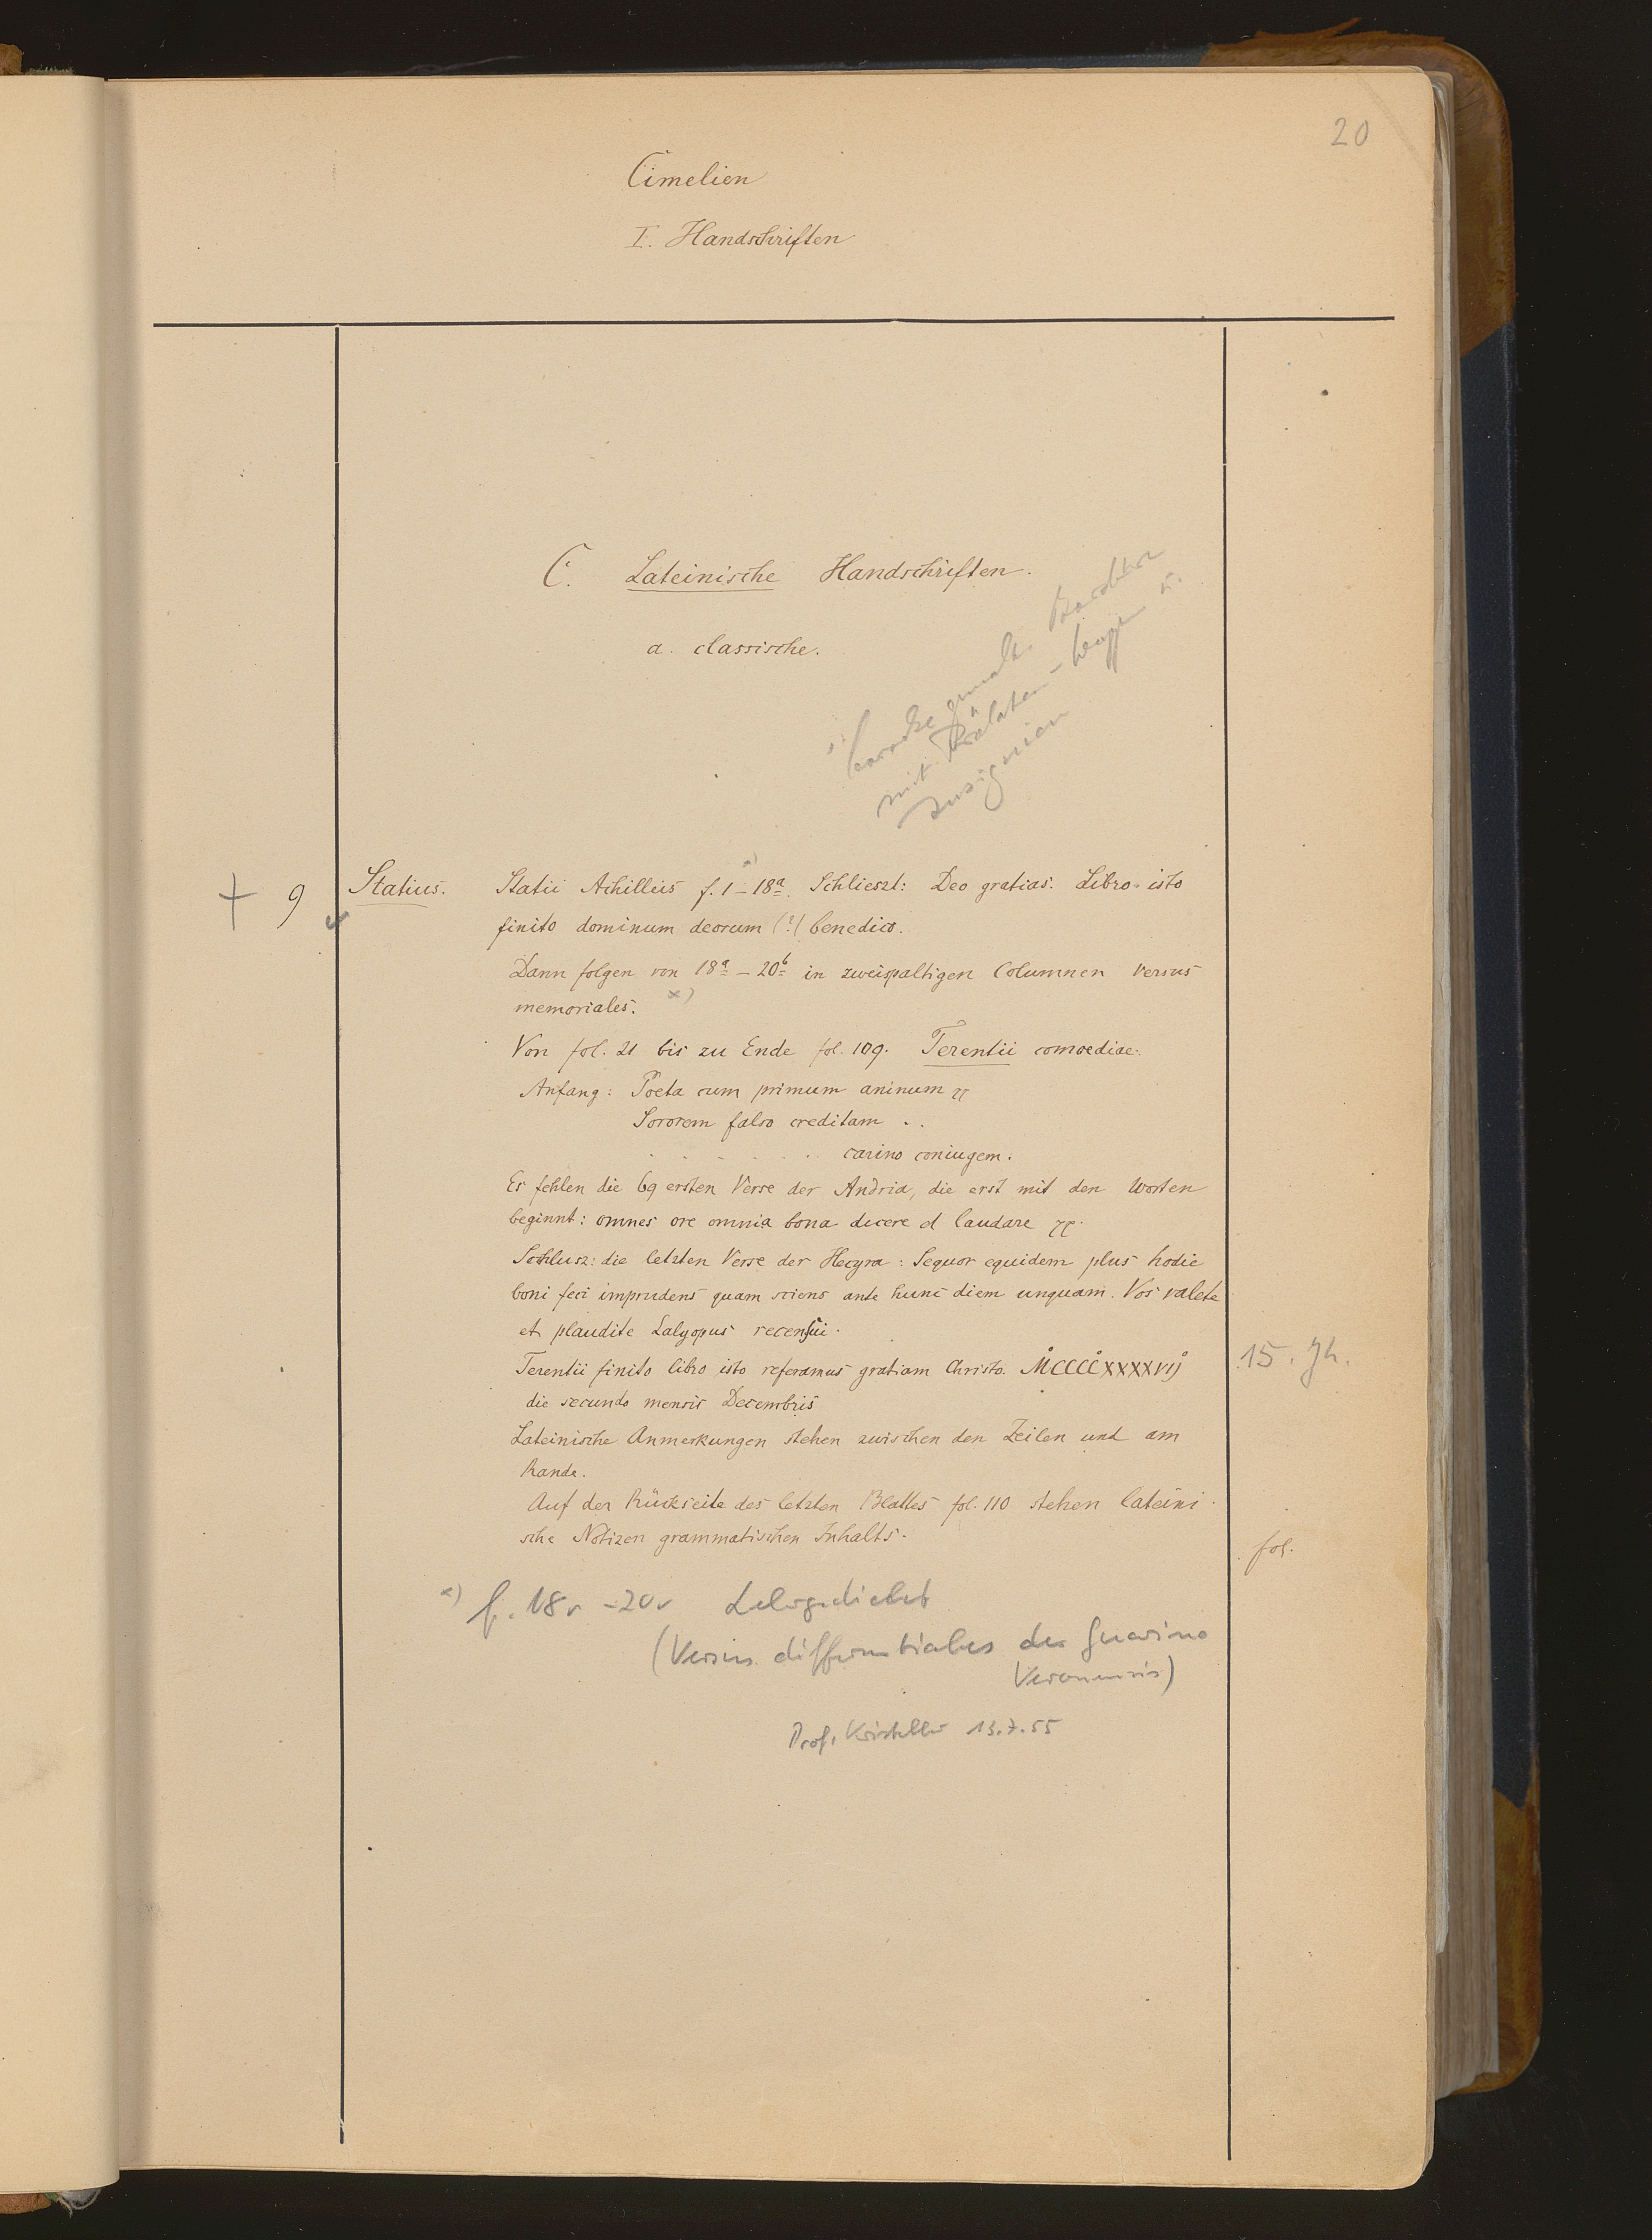 20
Cimelien
I. Handschriften
C. Lateinische Handschriften.
a. classische.
mit Prälaten-
Insignien
+ 9
Statius.
Statii Achilleis f. 1–18a. Schlieszt: Deo gratias. Libro isto
finito dominum deorum (?) benedico.
Dann folgen von 18a – 20b in zweispaltigen Columnen versus
memoriales. x)
Von fol. 21 bis zu Ende fol. 109. Terentii comoediae.
Anfang: Poeta cum primum aninum
Sororem falso creditam . .
. . . . . . carino coniugem.
Es fehlen die 69 ersten Verse der Andria, die erst mit den Worten
beginnt: omnes ore omnia bona dicere et laudare
Schlusz: die letzten Verse der Hecyra: Sequor equidem plus hodie
boni feci imprudens quam sciens ante hunc diem unquam. Vos valete
et plaudite Calyopus recensui.
Terentii finito libro isto referamus gratiam Christo. MCCCCXXXXVIJ
die secundo mensis Decembris
15. Jh.
Lateinische Anmerkungen stehen zwischen den Zeilen und am
Rande.
Auf der Rückseite des letzten Blattes fol. 110 stehen lateini
sche Notizen grammatischen Inhalts.
fol.
x) f. 18v – 20v Lehrgedicht
(Versus differentiales des Guarino
Veronensis)
Prof. Kristeller 13.7.55